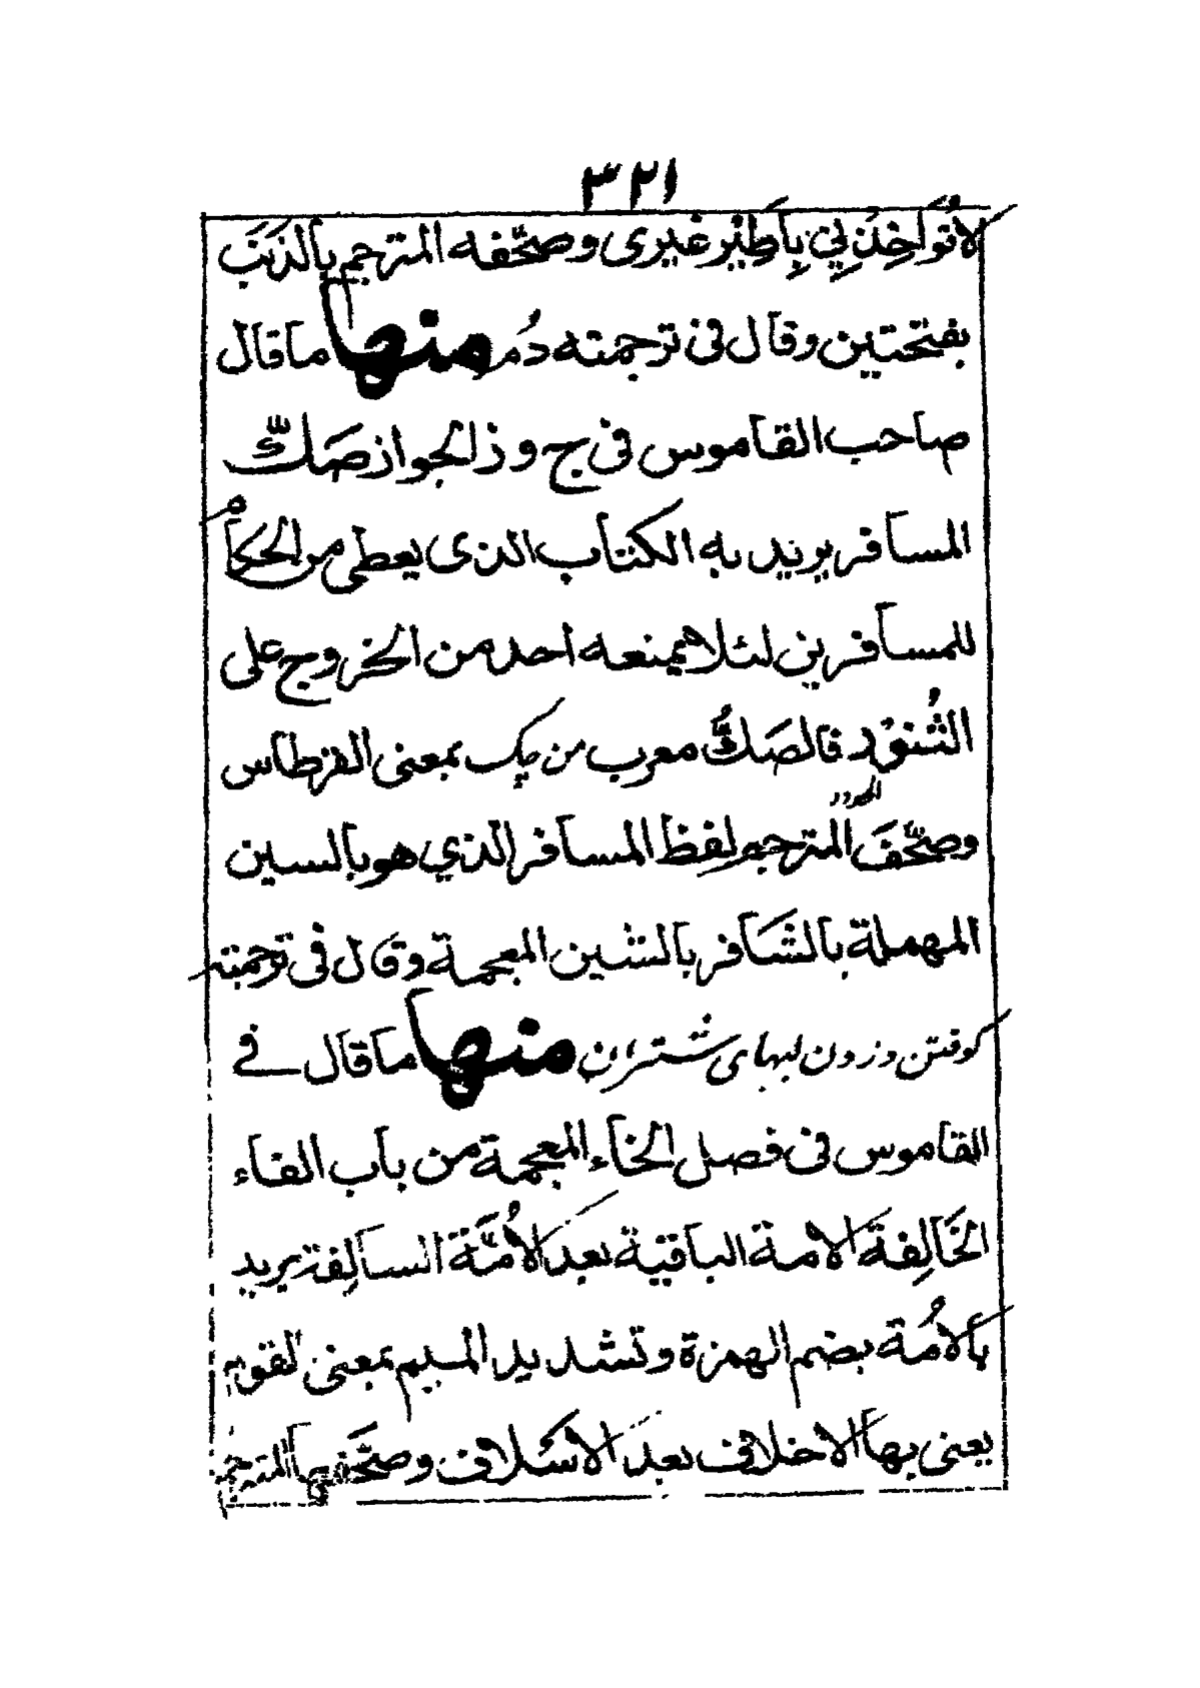 ٣٢١
لاتُوَاخِذنِي بِأَطِيْرِ غيرى وصحّفه المترجم بالذنَب
بفتحتين وقال فى ترجمته دُم منها ما قال
صاحب القاموس فى ج و ذ الجواز صَكّ
المسافر يريد به الكتاب الذى يعطى من الحكام
للمسافرين لئلا يمنعه احد من الخروج على
الثُنور قالصَكُّ معرب من چک بمعنى القرطاس
وصحّفَ المترجم لفظ المسافر الذي هو بالسين
المهملة بالشَافر بالشين المعجمة وقال فى ترجمته
كوفتن وزدن لبهاى شتران منها ما قال فے
القاموس فى فصل الخاء المعجمة من باب الفاء
الخَالِفة الامة الباقية بعد الأُمَّة السالِفة يريد
بالامُة بضم الهمزة وتشديد الميم بمعنى القوم
يعنى بها الاخلاف بعد الاسَلاف وصحَّفها المترجم